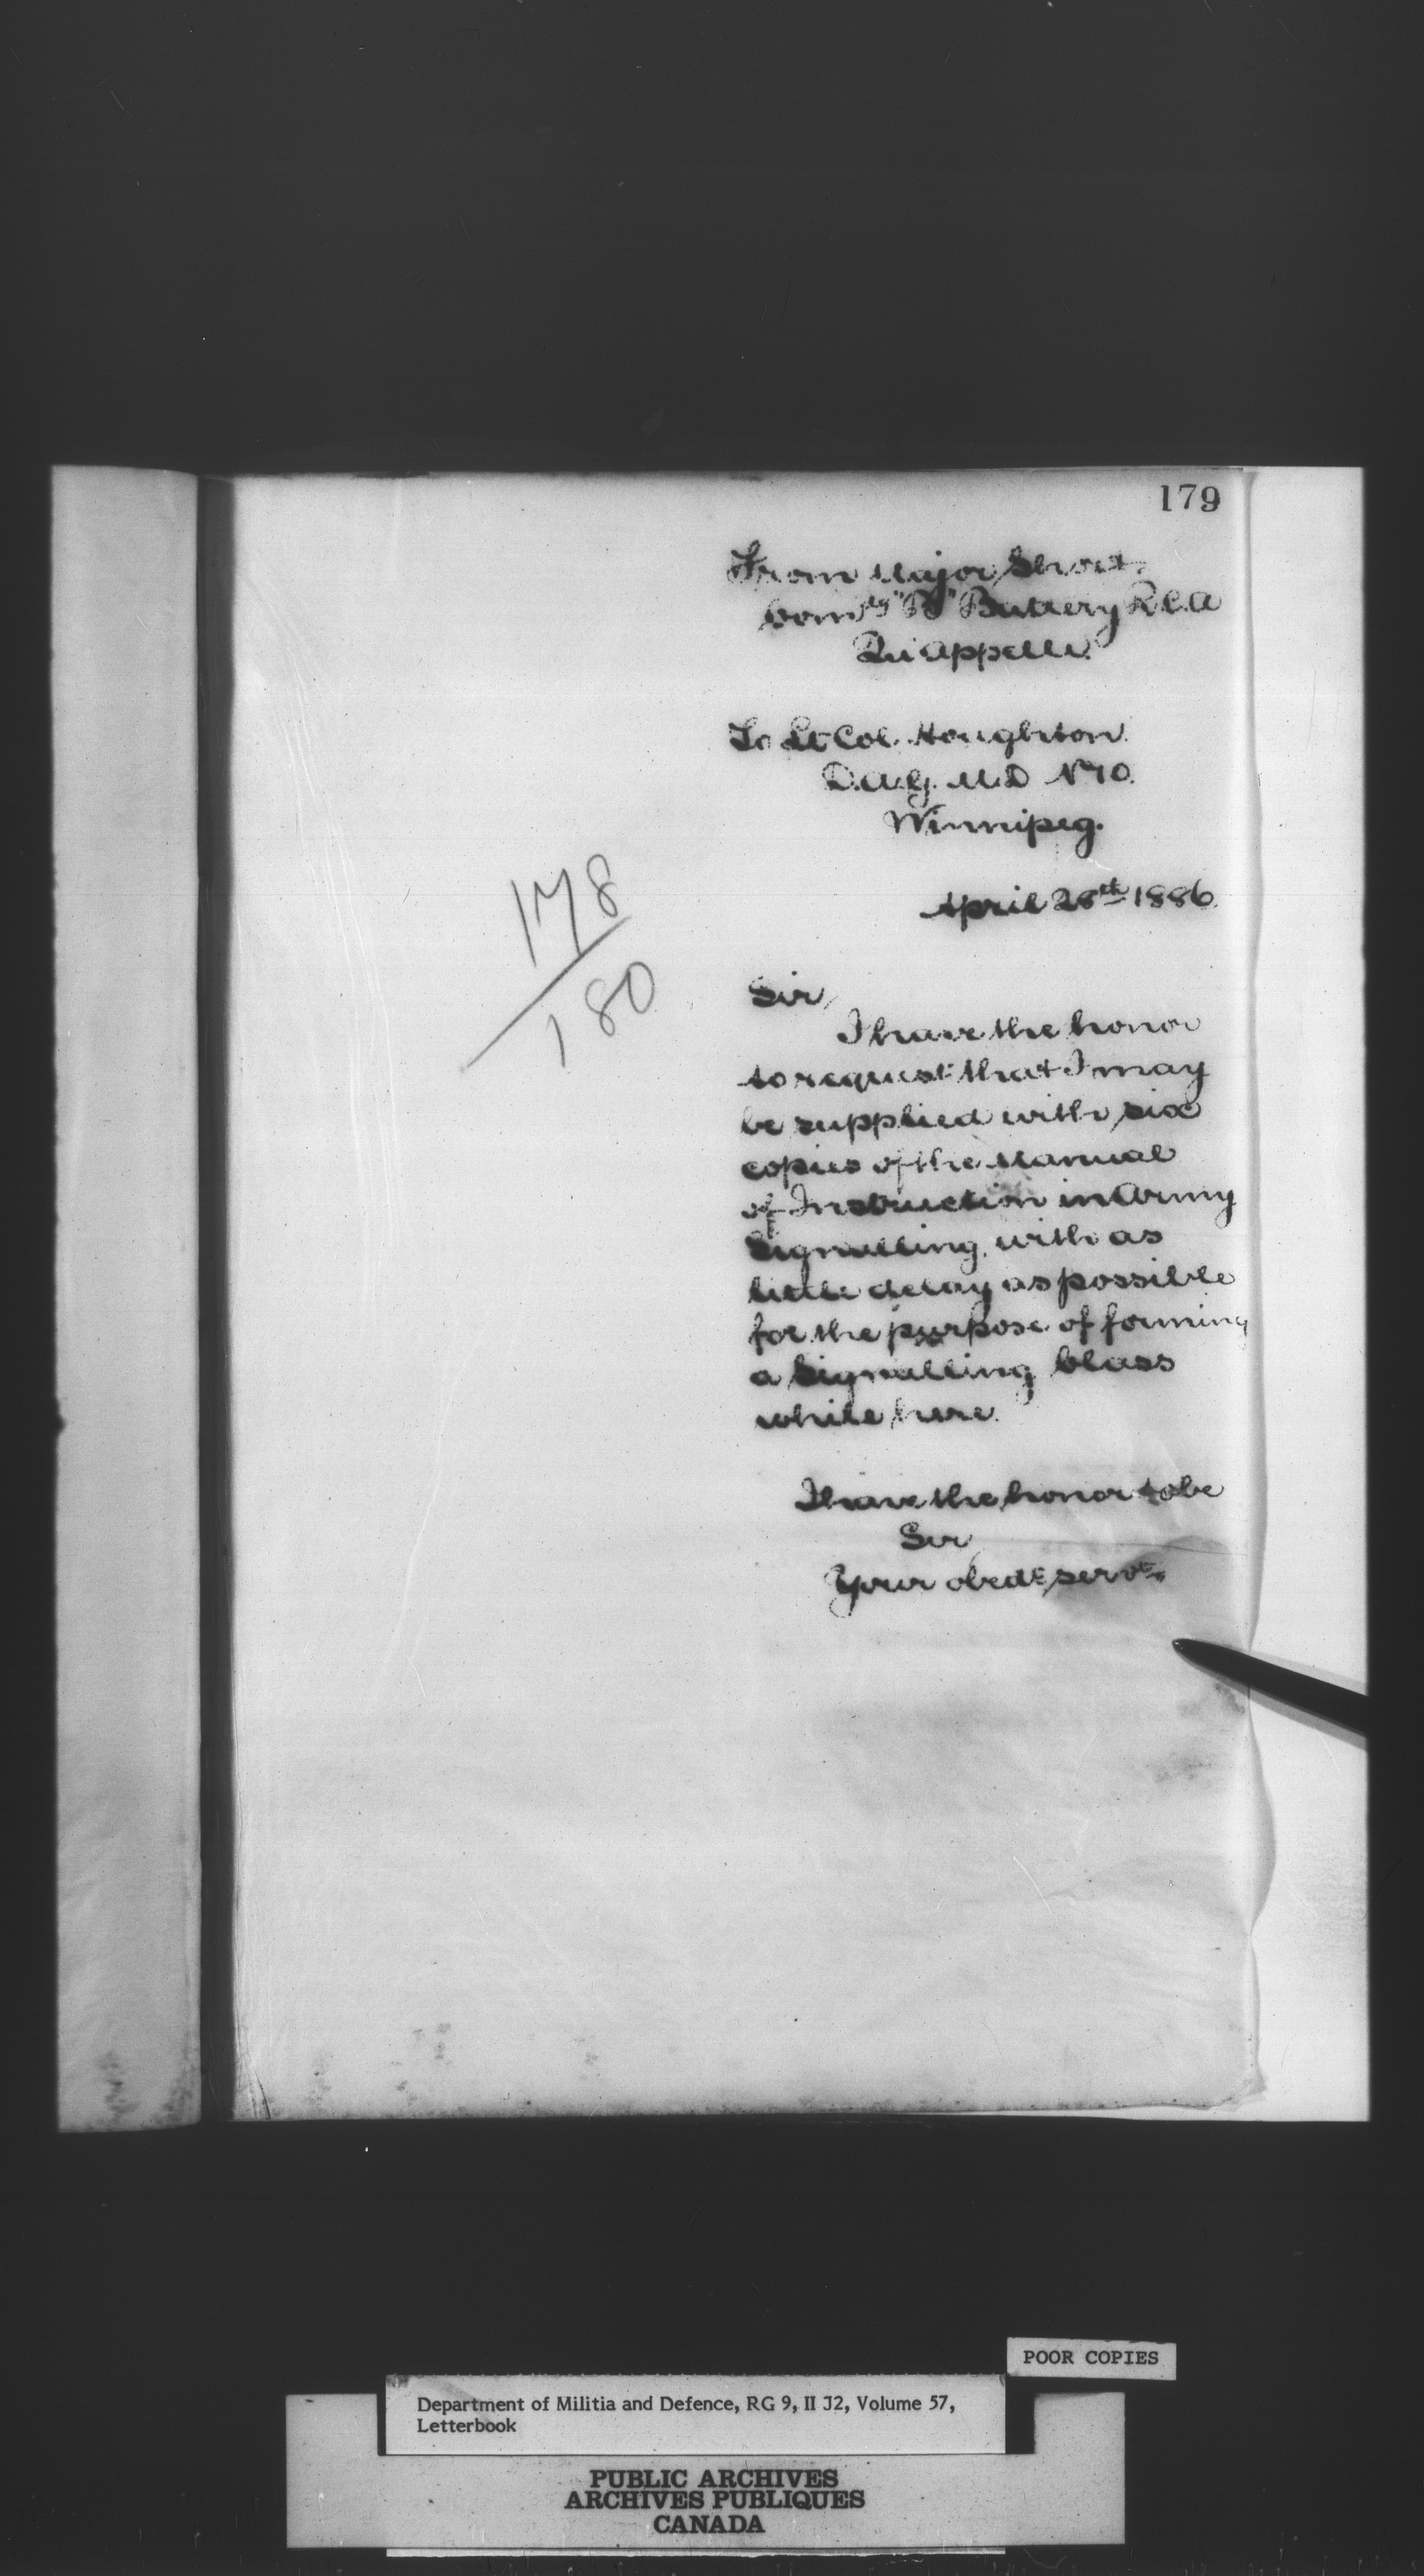 179
From Major Short
Comdg "B" Battery R.C.A
Qu'appelle.
To Lt Col. Houghton.
D.A.G. M.D No 10.
Winnipeg.
April 28th 1886.
178
180
Sir,
I have the honor
to request that I may
be supplied with six
copies of the Manual
of Instruction in Army
Signalling, with as
little delay as possible
for the purpose of forming
a Signalling Class
while here.
I have the honor to be
Sir
Your obedt servt.
POOR COPIES
Department of Militia and Defence, RG 9, II J2, Volume 57,
Letterbook
PUBLIC ARCHIVES
ARCHIVES PUBLIQUES
CANADA